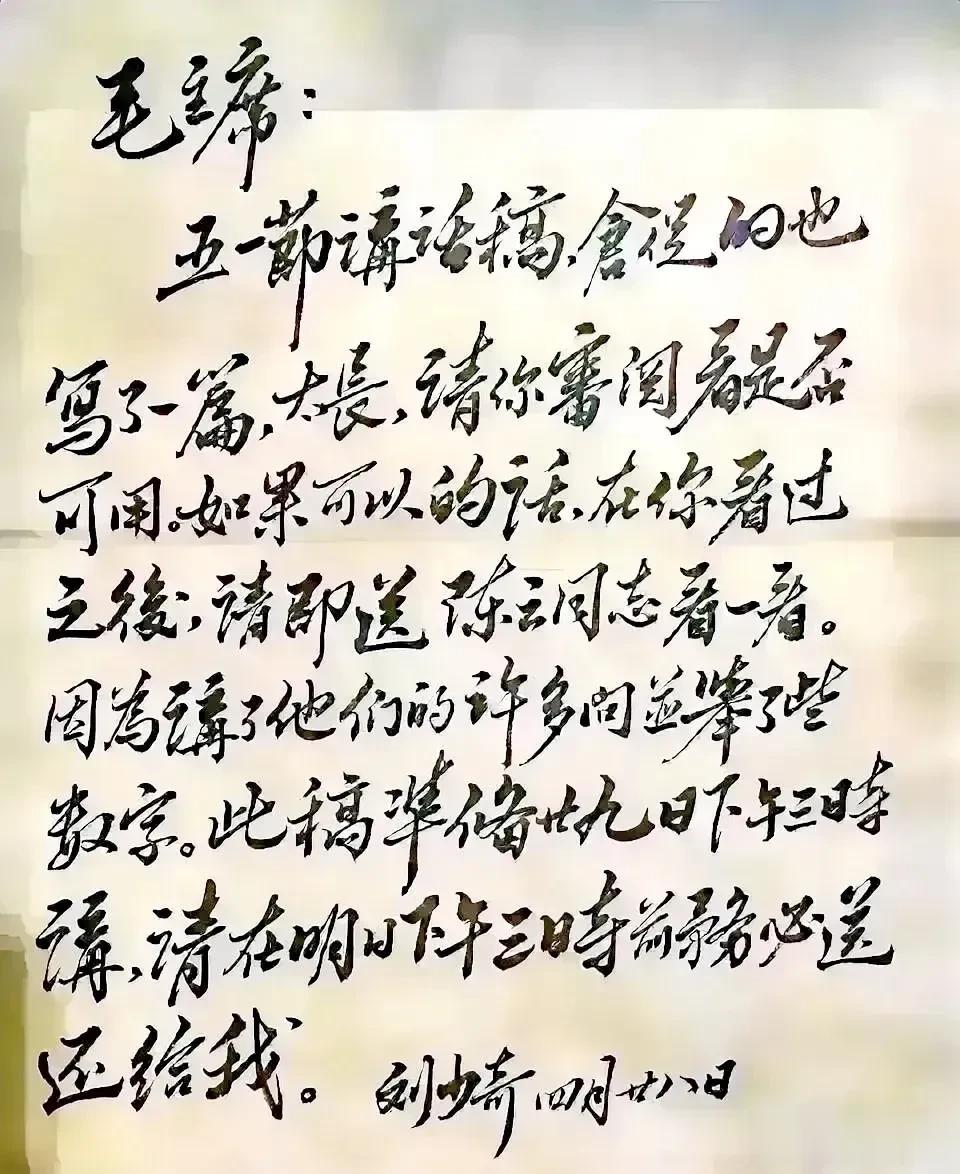 毛主席：
五一節講話稿，倉促的也
寫了一篇，太長，請你審閱看是否
可用。如果可以的話，在你看过
之後，請即送陈云同志看一看。
因為講了他們的许多问並舉了些
数字。此稿準備廿九日下午三时
講，请在明日下午三时前务必送
还给我。 刘少奇 四月廿八日